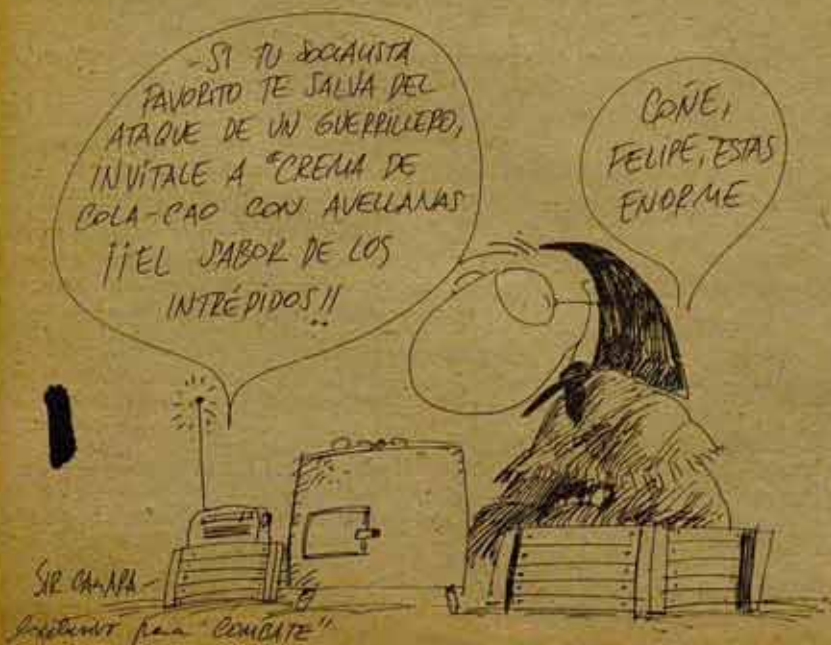 -SI TU SOCIALISTA
FAVORITO TE SALVA DEL
ATAQUE DE UN GUERRILLERO,
INVÍTALE A "CREMA DE
COLA-CAO CON AVELLANAS
¡¡EL SABOR DE LOS
INTRÉPIDOS!!
COÑE,
FELIPE, ESTAS
ENORME
SIR CÁMARA-
para "COMBATE"